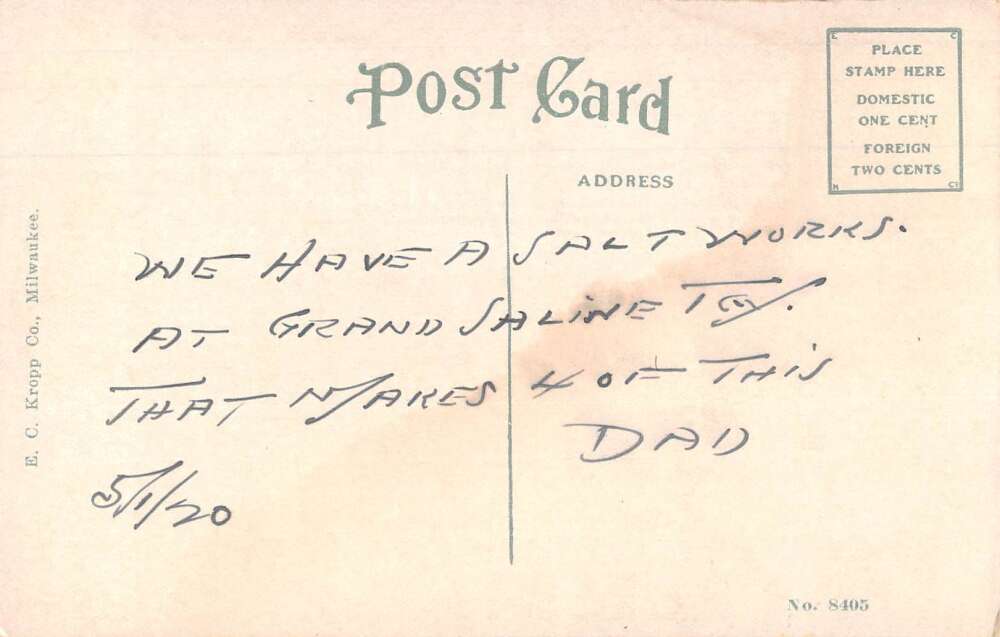 Post Card
PLACE
STAMP HERE
DOMESTIC
ONE CENT
FOREIGN
TWO CENTS
ADDRESS
E. C. Kropp Co., Milwaukee.
WE HAVE A SALT WORKS.
AT GRAND SALINE
THAT MAKES 4 OF THIS
DAD
5/1/20
No. 8405